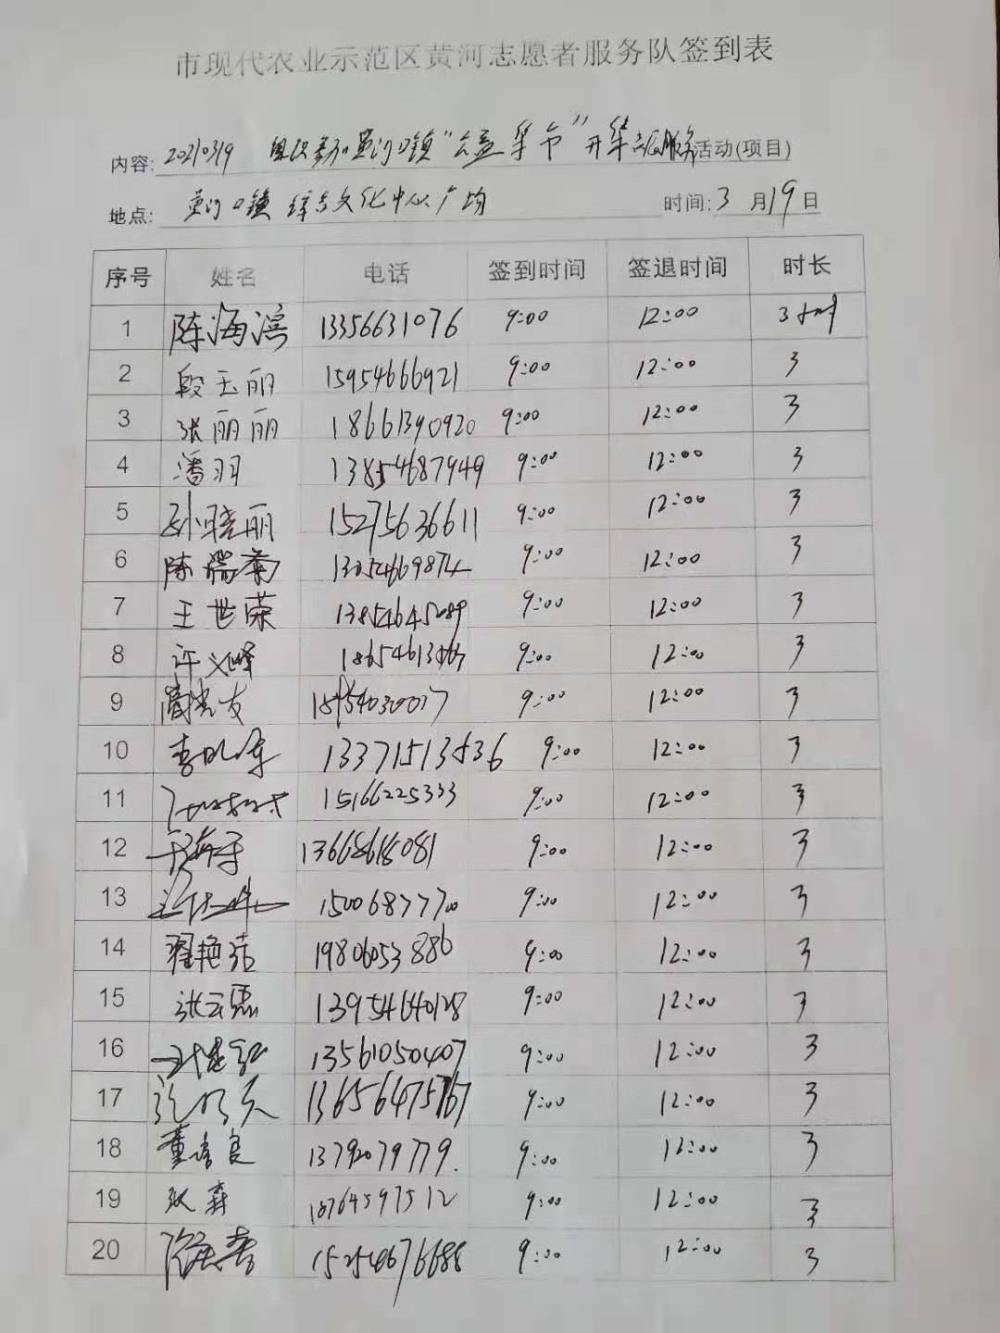 市现代农业示范区黄河志愿者服务队签到表
内容: 20210319 组织参加黄河口镇“公益集市”开集志愿服务活动(项目)
地点: 黄河口镇综合文化中心广场 时间: 3月19日
序号 姓名 电话 签到时间 签退时间 时长
1 陈海滨 13356631076 9:00 12:00 3小时
2 段玉丽 15954666921 9:00 12:00 3
3 张丽丽 18661390920 9:00 12:00 3
4 潘羽 13854687949 9:00 12:00 3
5 孙晓丽 15275636611 9:00 12:00 3
6 陈瑞菊 13054669874 9:00 12:00 3
7 王世荣 13854645089 9:00 12:00 3
8 许义峰 9:00 12:00 3
9 9:00 12:00 3
10 13371513536 9:00 12:00 3
11 15166225333 9:00 12:00 3
12 13668618081 9:00 12:00 3
13 15006877700 9:00 12:00 3
14 翟艳洁 19806053886 9:00 12:00 3
15 13954640128 9:00 12:00 3
16 13561050407 9:00 12:00 3
17 9:00 12:00 3
18 13792079779. 9:00 12:00 3
19 张森 18764597512 9:00 12:00 3
20 15254676688 9:00 12:00 3